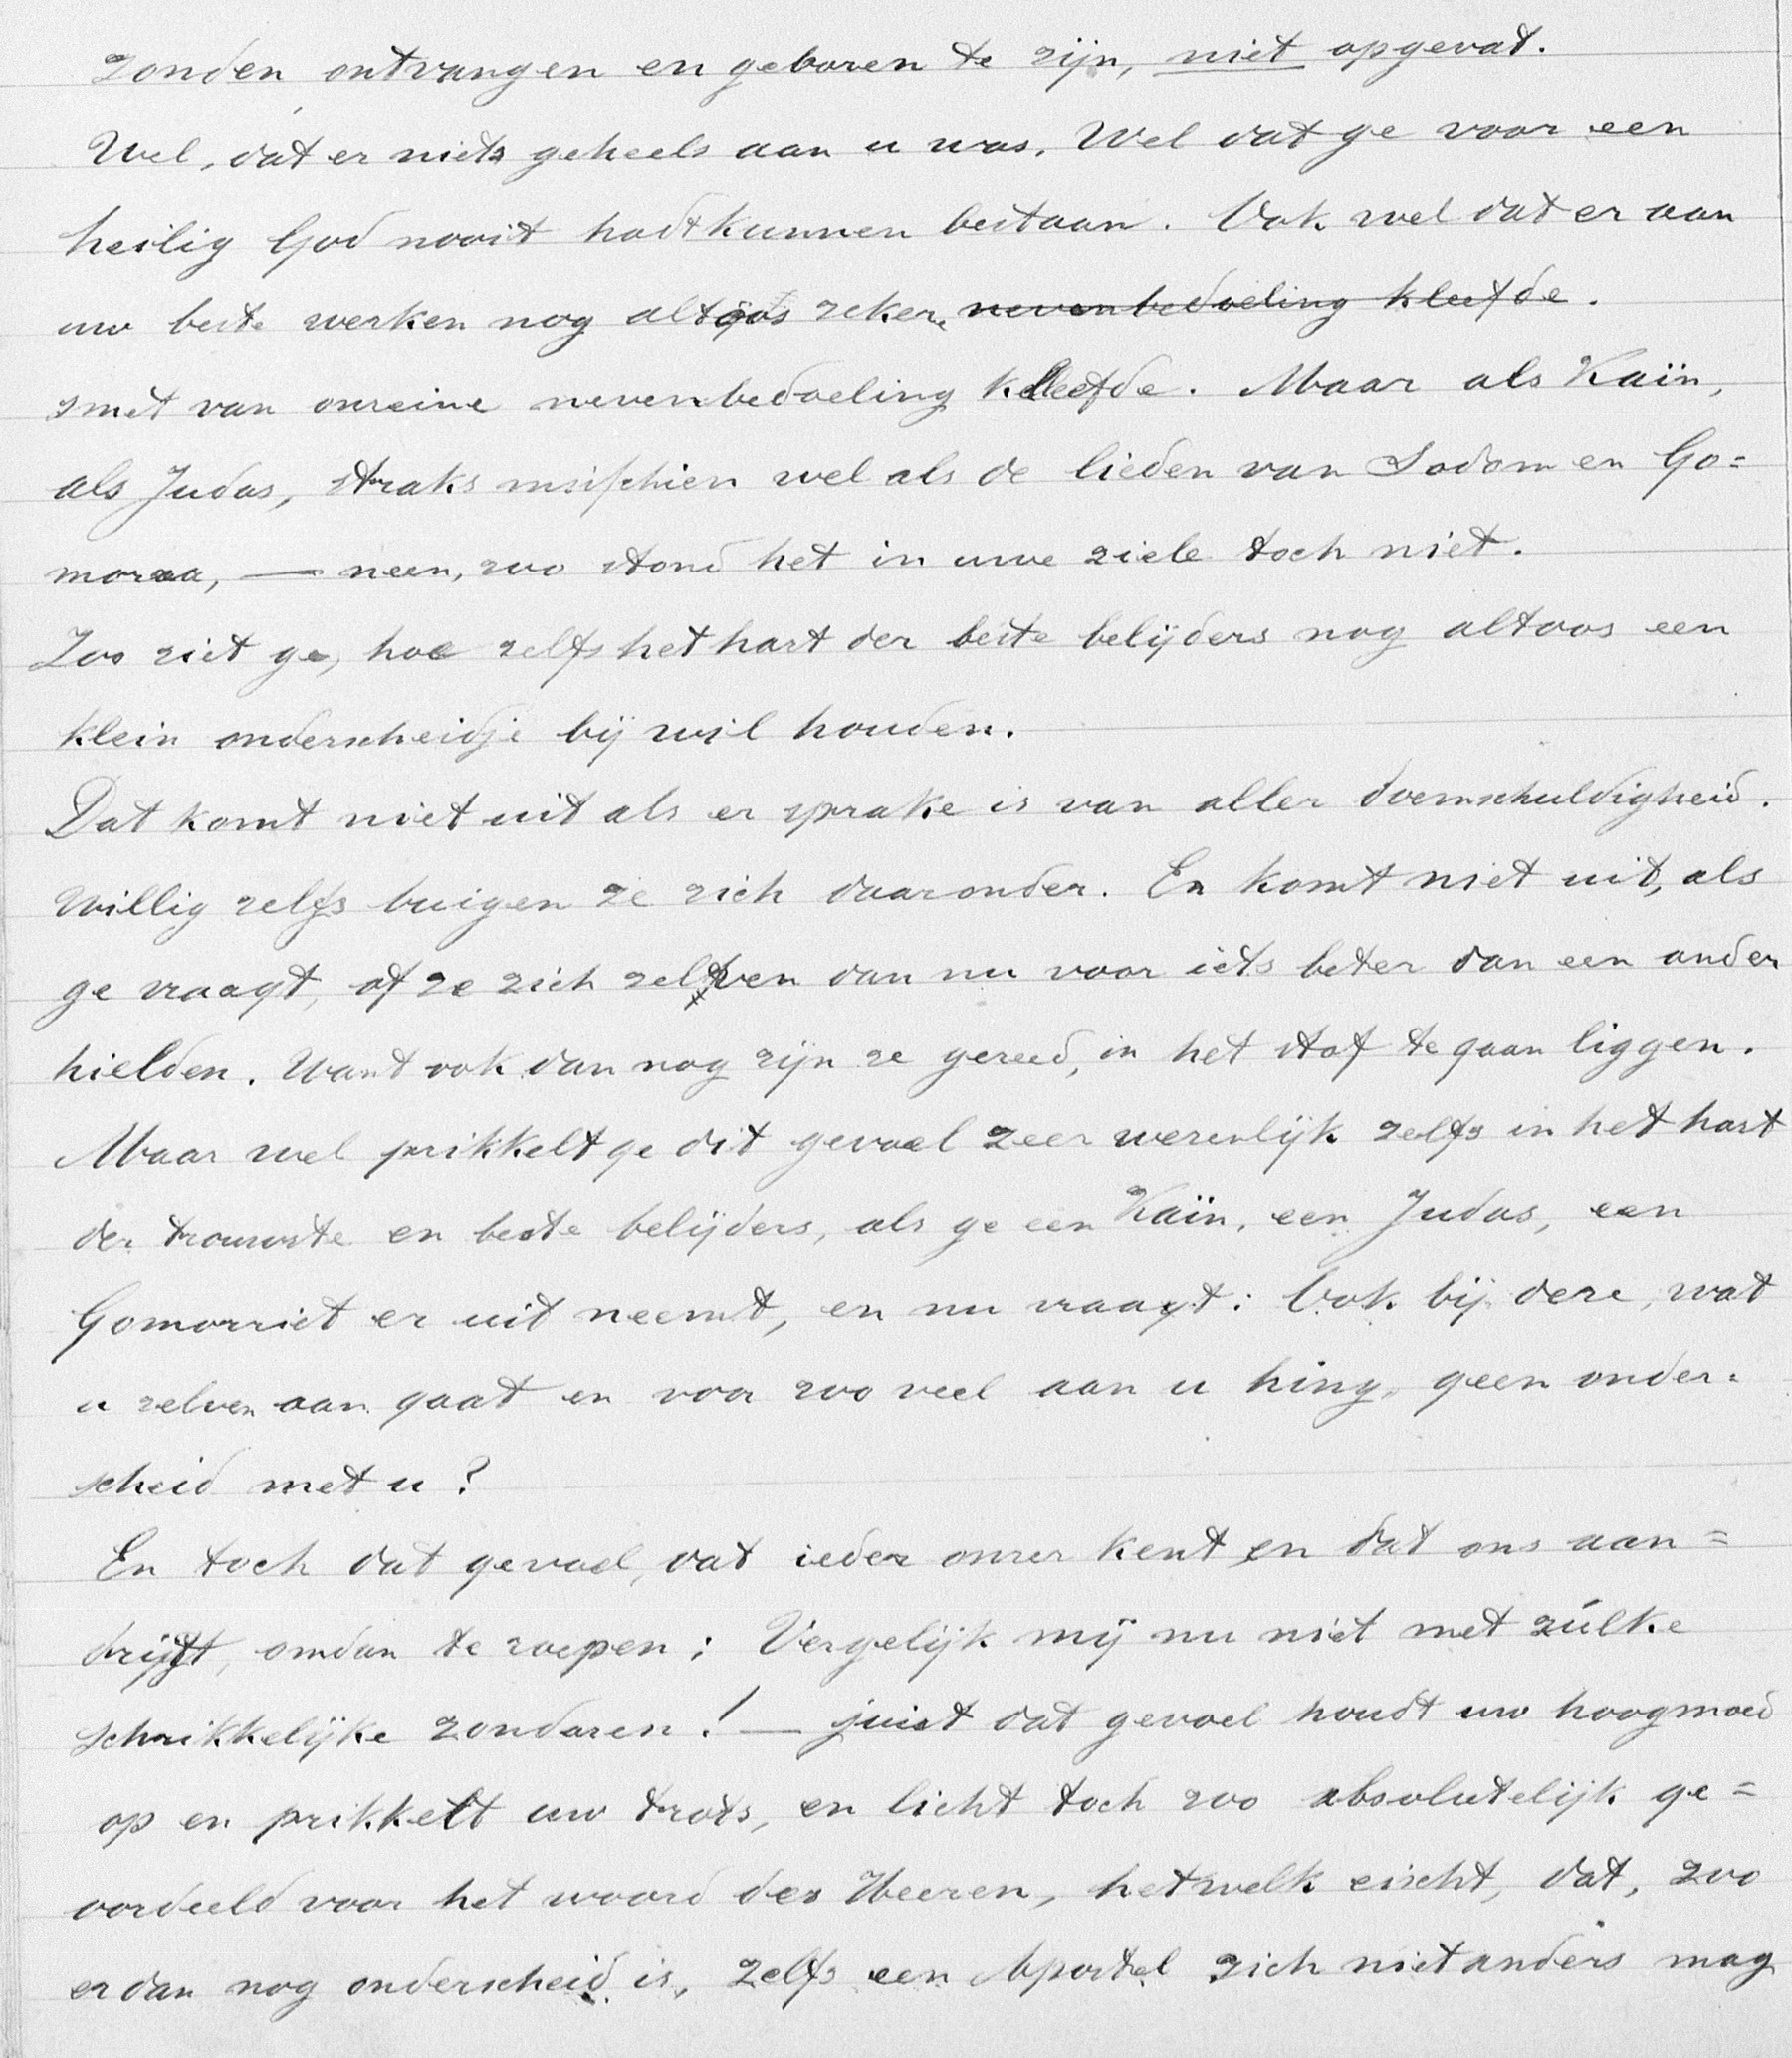 zonden ontvangen en geboren te zijn, niet opgevat.
Wel, dat er niets geheels aan u was. Wel dat ge voor een
heilig God nooit hadt kunnen bestaan. Ook wel dat er aan
uw beste werken nog altoos zekere nevenbedoeling kleefde.
smet van onreine nevenbedoeling kleefde. Maar als Kaïn,
als Judas, straks misschien wel als de lieden van Sodom en Go=
morra, — neen, zoo stond het in uwe ziele toch niet.
Zoo ziet ge, hoe zelfs het hart der beste belijders nog altoos een
klein onderscheidje bij wil houden.
Dat komt niet uit als er sprake is van aller doemschuldigheid.
Willig zelfs buigen ze zich daaronder. En komt niet uit, als
ge vraagt, of ze zich zelven dan nu voor iets beter dan een ander
hielden. Want ook dan nog zijn ze gereed, in het stof te gaan liggen.
Maar wel prikkelt ge dit gevoel zeer wezenlijk zelfs in het hart
der trouwste en beste belijders, als ge een Kaïn, een Judas, een
Gomorriet er uit neemt, en nu vraagt: Ook bij deze, wat
u zelven aan gaat en voor zoo veel aan u hing, geen onder=
scheid met u?
En toch dat gevoel, dat ieder onzer kent en dat ons aan=
drijft, omdan te roepen: Vergelijk mij nu niet met zúlke
schrikkelijke zondaren! — juist dat gevoel houdt uw hoogmoed
op en prikkelt uw trots, en licht toch zoo absolutelijk ge=
oordeeld voor het woord des Heeren, hetwelk eischt, dat, zoo
er dan nog onderscheid is, zelfs een Apostel zich niet anders mag